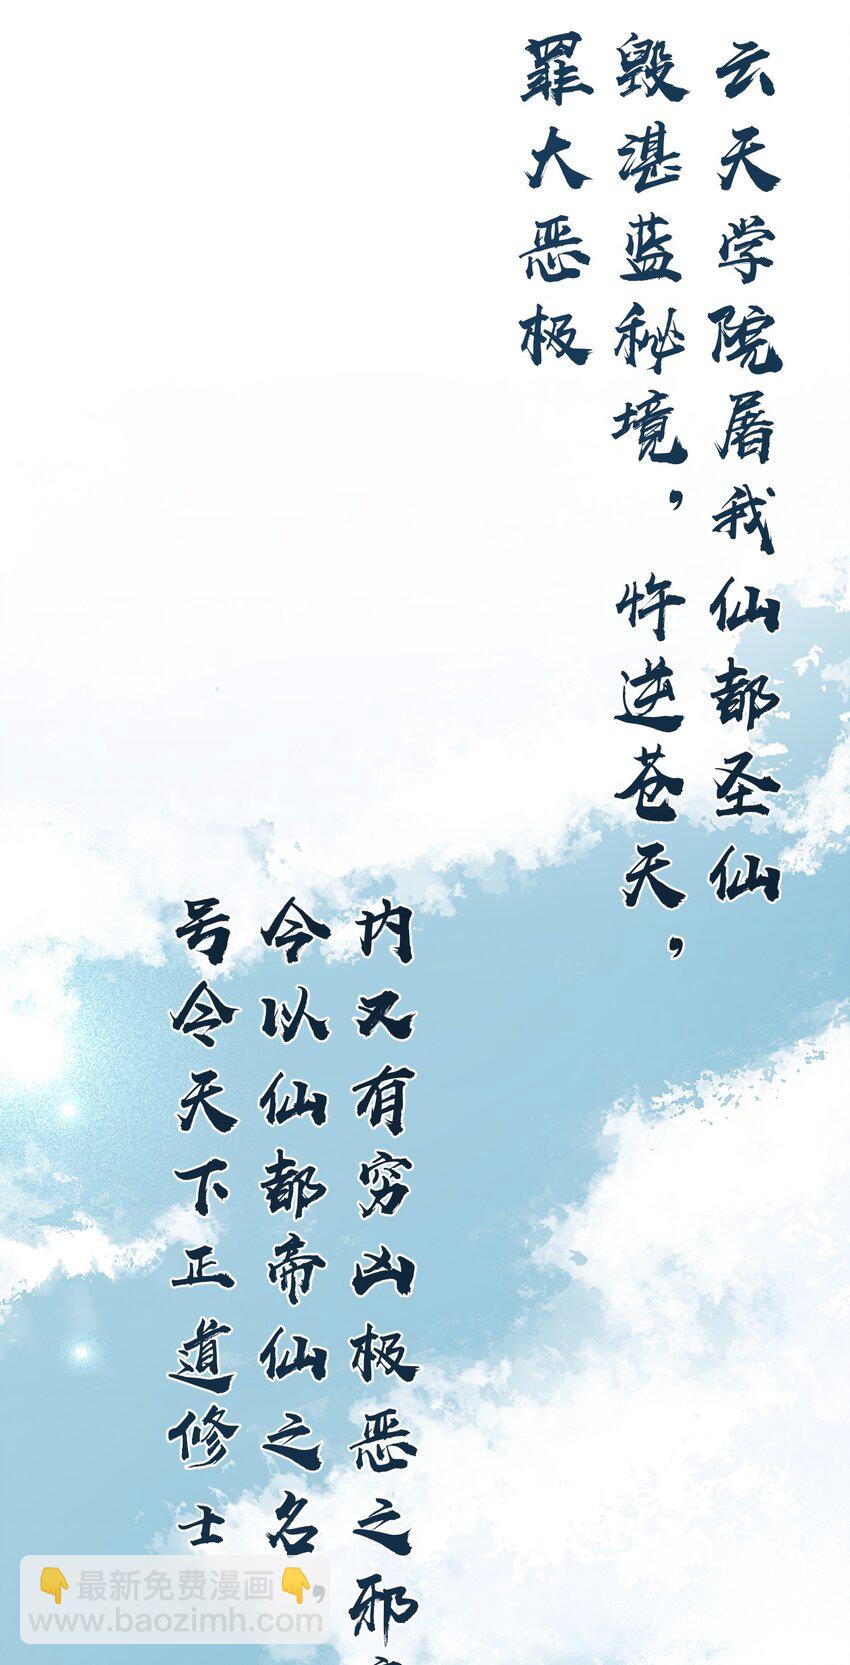 云天学院屠我仙都圣仙
毁湛蓝秘境，忤逆苍天，
罪大恶极
内又有穷凶极恶之邪
今以仙都帝仙之名，
号令天下正道修士
👇最新免费漫画👇
www.baozimh.com